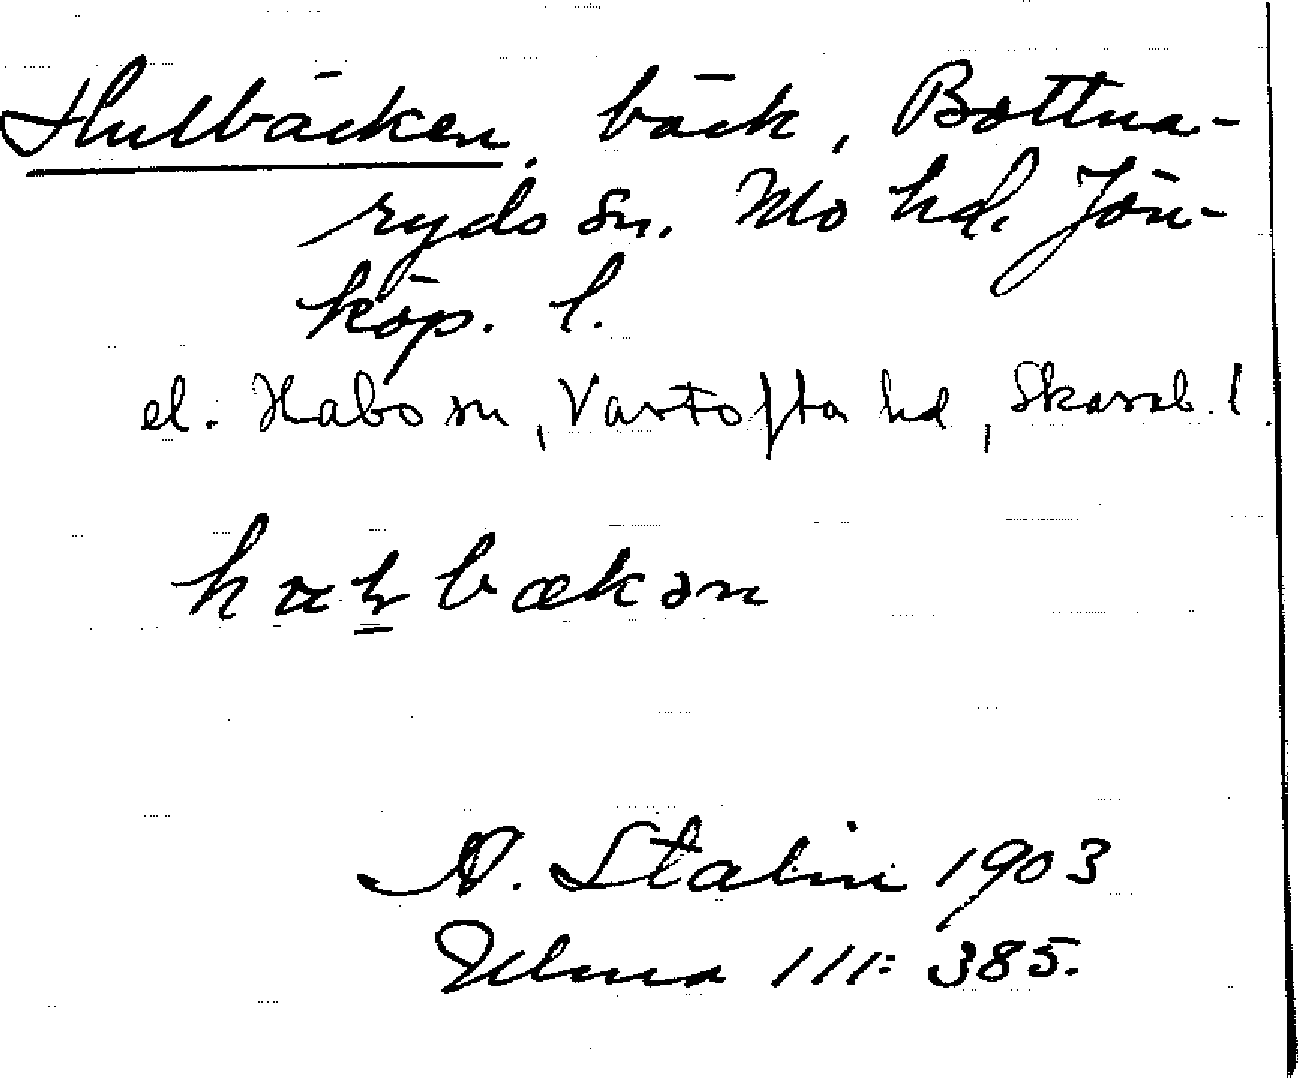 Hulbäcken, bäck, Bottna-
ryds sn. Mo hd. Jön-
köp. l.
el. Habo sn, Vartofta hd, Skarab. l.
bækən
A. Stalin 1903
Ulma 111: 385.